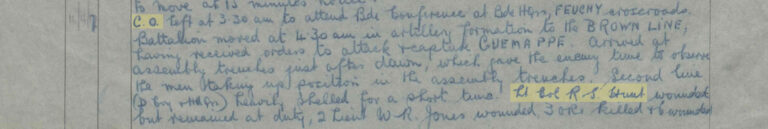 to move at 15 minutes notice
C.O. left at 3-30 am to attend Bde Conference at Bde Hqrs, FEUCHY crossroads.
Battalion moved at 4-30 am in artillery formation to the BROWN LINE,
having received orders to attack & capture GUEMAPPE. Arrived at
assembly trenches just after dawn, which gave the enemy time to observe
the men taking up position in the assembly trenches. Second line
heavily shelled for a short time. Lt Col R S Hunt wounded
but remained at duty, 2 Lieut W.R. Jones wounded 3 ORs killed & 6 wounded